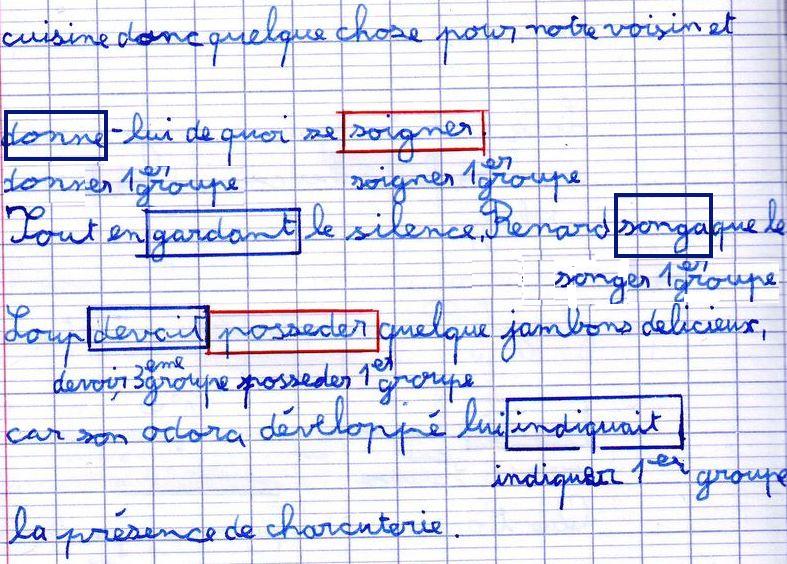 cuisine donc quelque chose pour notre voisin et
donne-lui de quoi se soigner.
donner 1er groupe soigner 1er groupe
Tout en gardant le silence, Renard songa que le
songer 1er groupe
Loup devait posseder quelque jambons delicieux,
devoir 3eme groupe posseder 1er groupe
car son odora développé lui indiquait
indiquer 1er groupe
la présence de charcuterie.